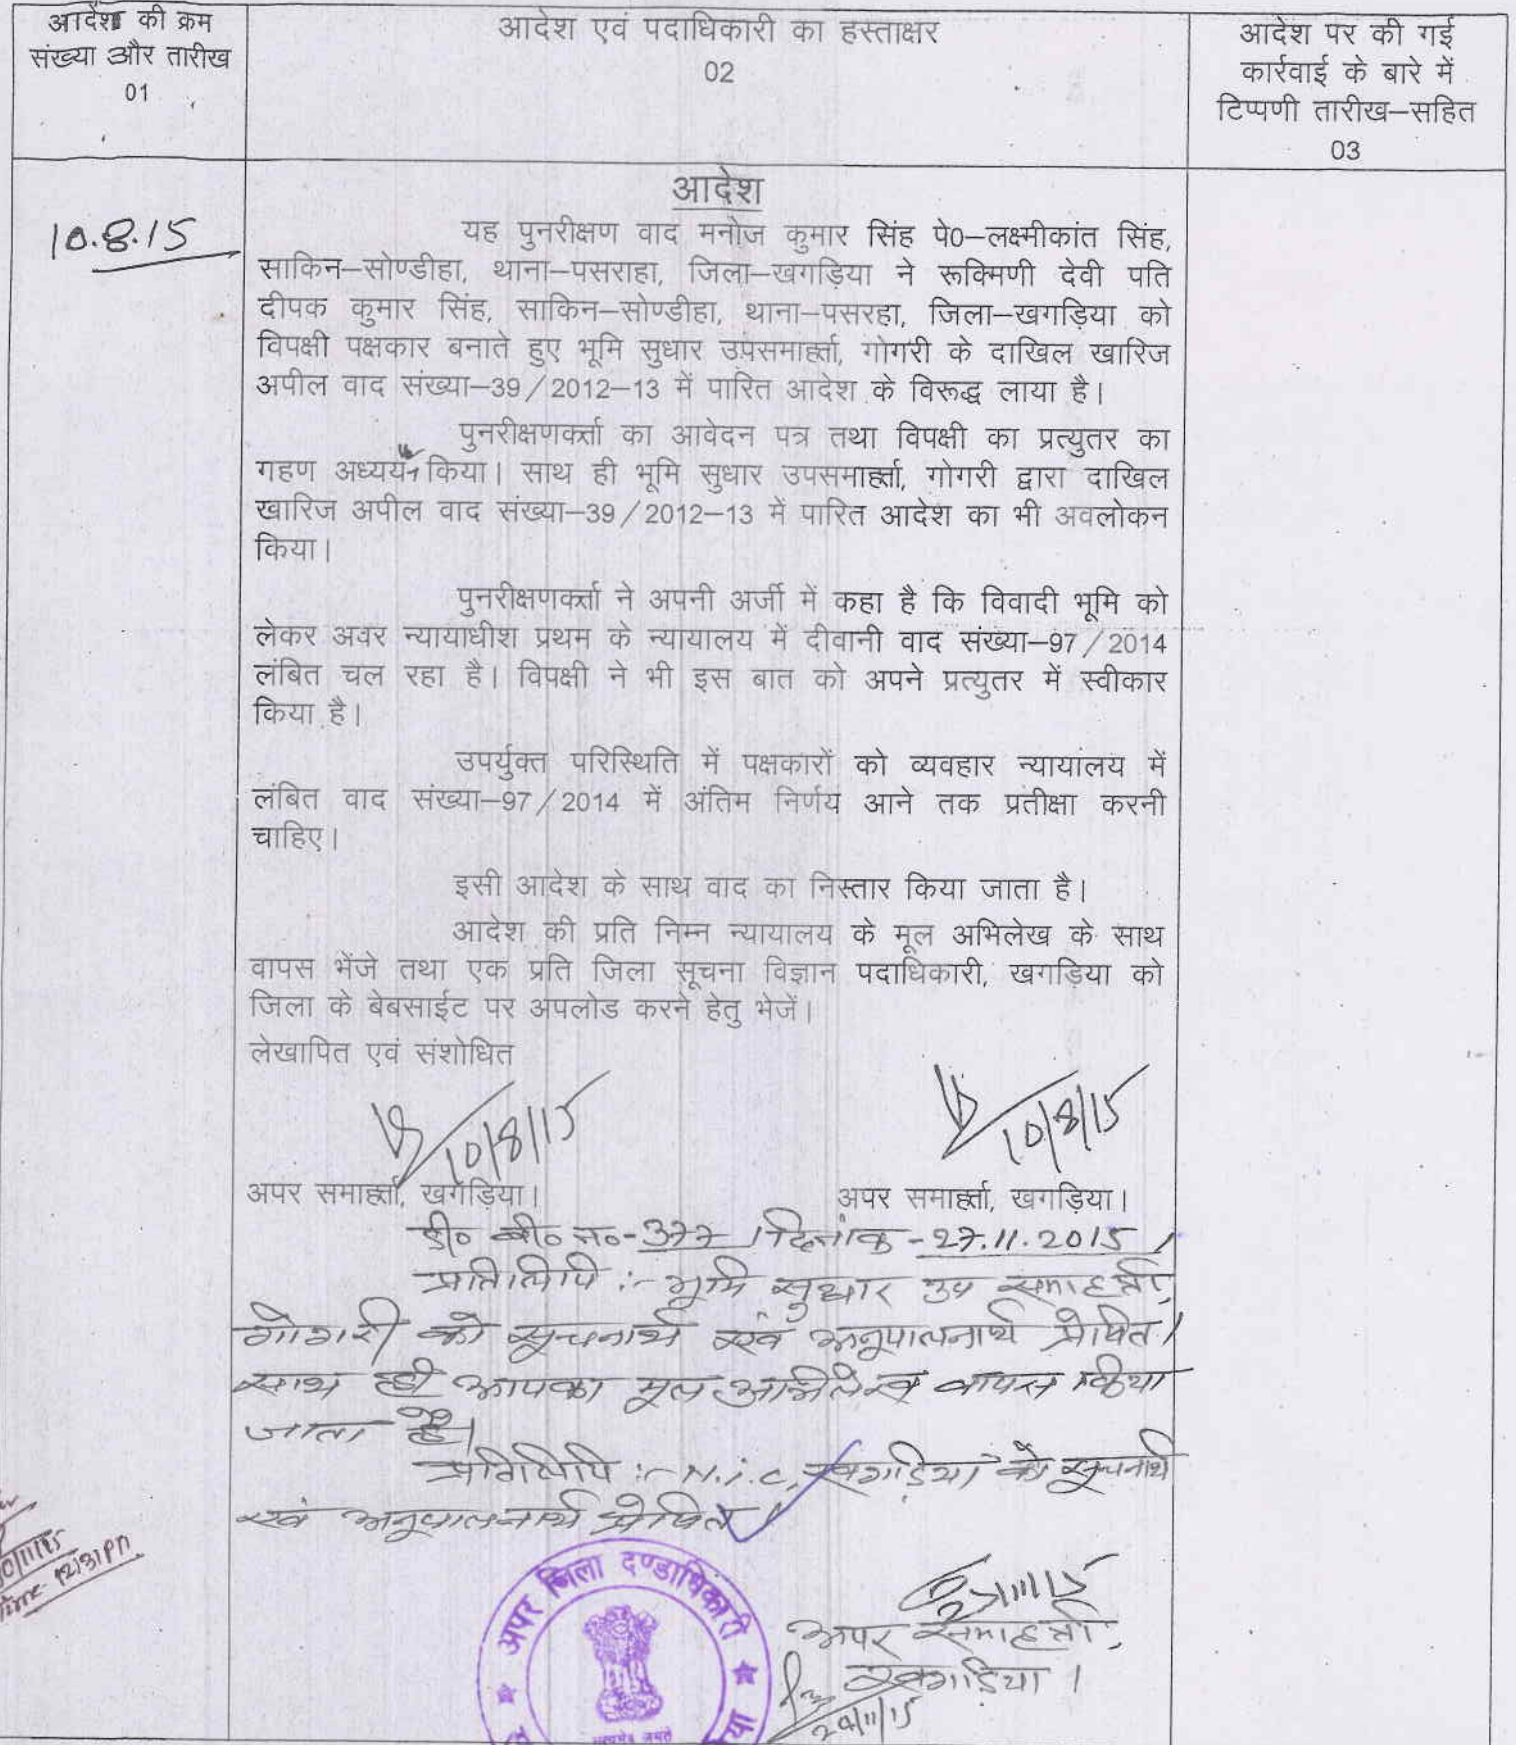 आदेश की क्रम
संख्या और तारीख
01
आदेश एवं पदाधिकारी का हस्ताक्षर
02
आदेश पर की गई
कार्रवाई के बारे में
टिप्पणी तारीख–सहित
03
10.8.15
आदेश
यह पुनरीक्षण वाद मनोज कुमार सिंह पे0–लक्ष्मीकांत सिंह,
साकिन–सोण्डीहा, थाना–पसराहा, जिला–खगड़िया ने रूक्मिणी देवी पति
दीपक कुमार सिंह, साकिन–सोण्डीहा, थाना–पसरहा, जिला–खगड़िया को
विपक्षी पक्षकार बनाते हुए भूमि सुधार उपसमाहर्त्ता, गोगरी के दाखिल खारिज
अपील वाद संख्या–39/2012–13 में पारित आदेश के विरूद्ध लाया है।
पुनरीक्षणकर्त्ता का आवेदन पत्र तथा विपक्षी का प्रत्युतर का
गहण अध्ययन किया। साथ ही भूमि सुधार उपसमाहर्त्ता, गोगरी द्वारा दाखिल
खारिज अपील वाद संख्या–39/2012–13 में पारित आदेश का भी अवलोकन
किया।
पुनरीक्षणकर्त्ता ने अपनी अर्जी में कहा है कि विवादी भूमि को
लेकर अवर न्यायाधीश प्रथम के न्यायालय में दीवानी वाद संख्या–97/2014
लंबित चल रहा है। विपक्षी ने भी इस बात को अपने प्रत्युतर में स्वीकार
किया है।
उपर्युक्त परिस्थिति में पक्षकारों को व्यवहार न्यायालय में
लंबित वाद संख्या–97/2014 में अंतिम निर्णय आने तक प्रतीक्षा करनी
चाहिए।
इसी आदेश के साथ वाद का निस्तार किया जाता है।
आदेश की प्रति निम्न न्यायालय के मूल अभिलेख के साथ
वापस भेंजे तथा एक प्रति जिला सूचना विज्ञान पदाधिकारी, खगड़िया को
जिला के बेबसाईट पर अपलोड करने हेतु भेजें।
लेखापित एवं संशोधित
10/8/15
10/8/15
अपर समाहर्त्ता, खगड़िया।
अपर समाहर्त्ता, खगड़िया।
डी० बी० न०-377 / दिनांक-27.11.2015
प्रतिलिपि :- भूमि सुधार उप समाहर्त्ता,
गोगरी को सूचनार्थ एवं अनुपालनार्थ प्रेषित।
साथ ही आपका मूल अभिलेख वापस किया
जाता है।
प्रतिलिपि :- N.i.c, खगड़िया को सूचनार्थ
एवं अनुपालनार्थ प्रेषित।
12/31PM
अपर जिला दण्डाधिकारी
सत्यमेव जयते
अपर समाहर्त्ता,
खगड़िया।